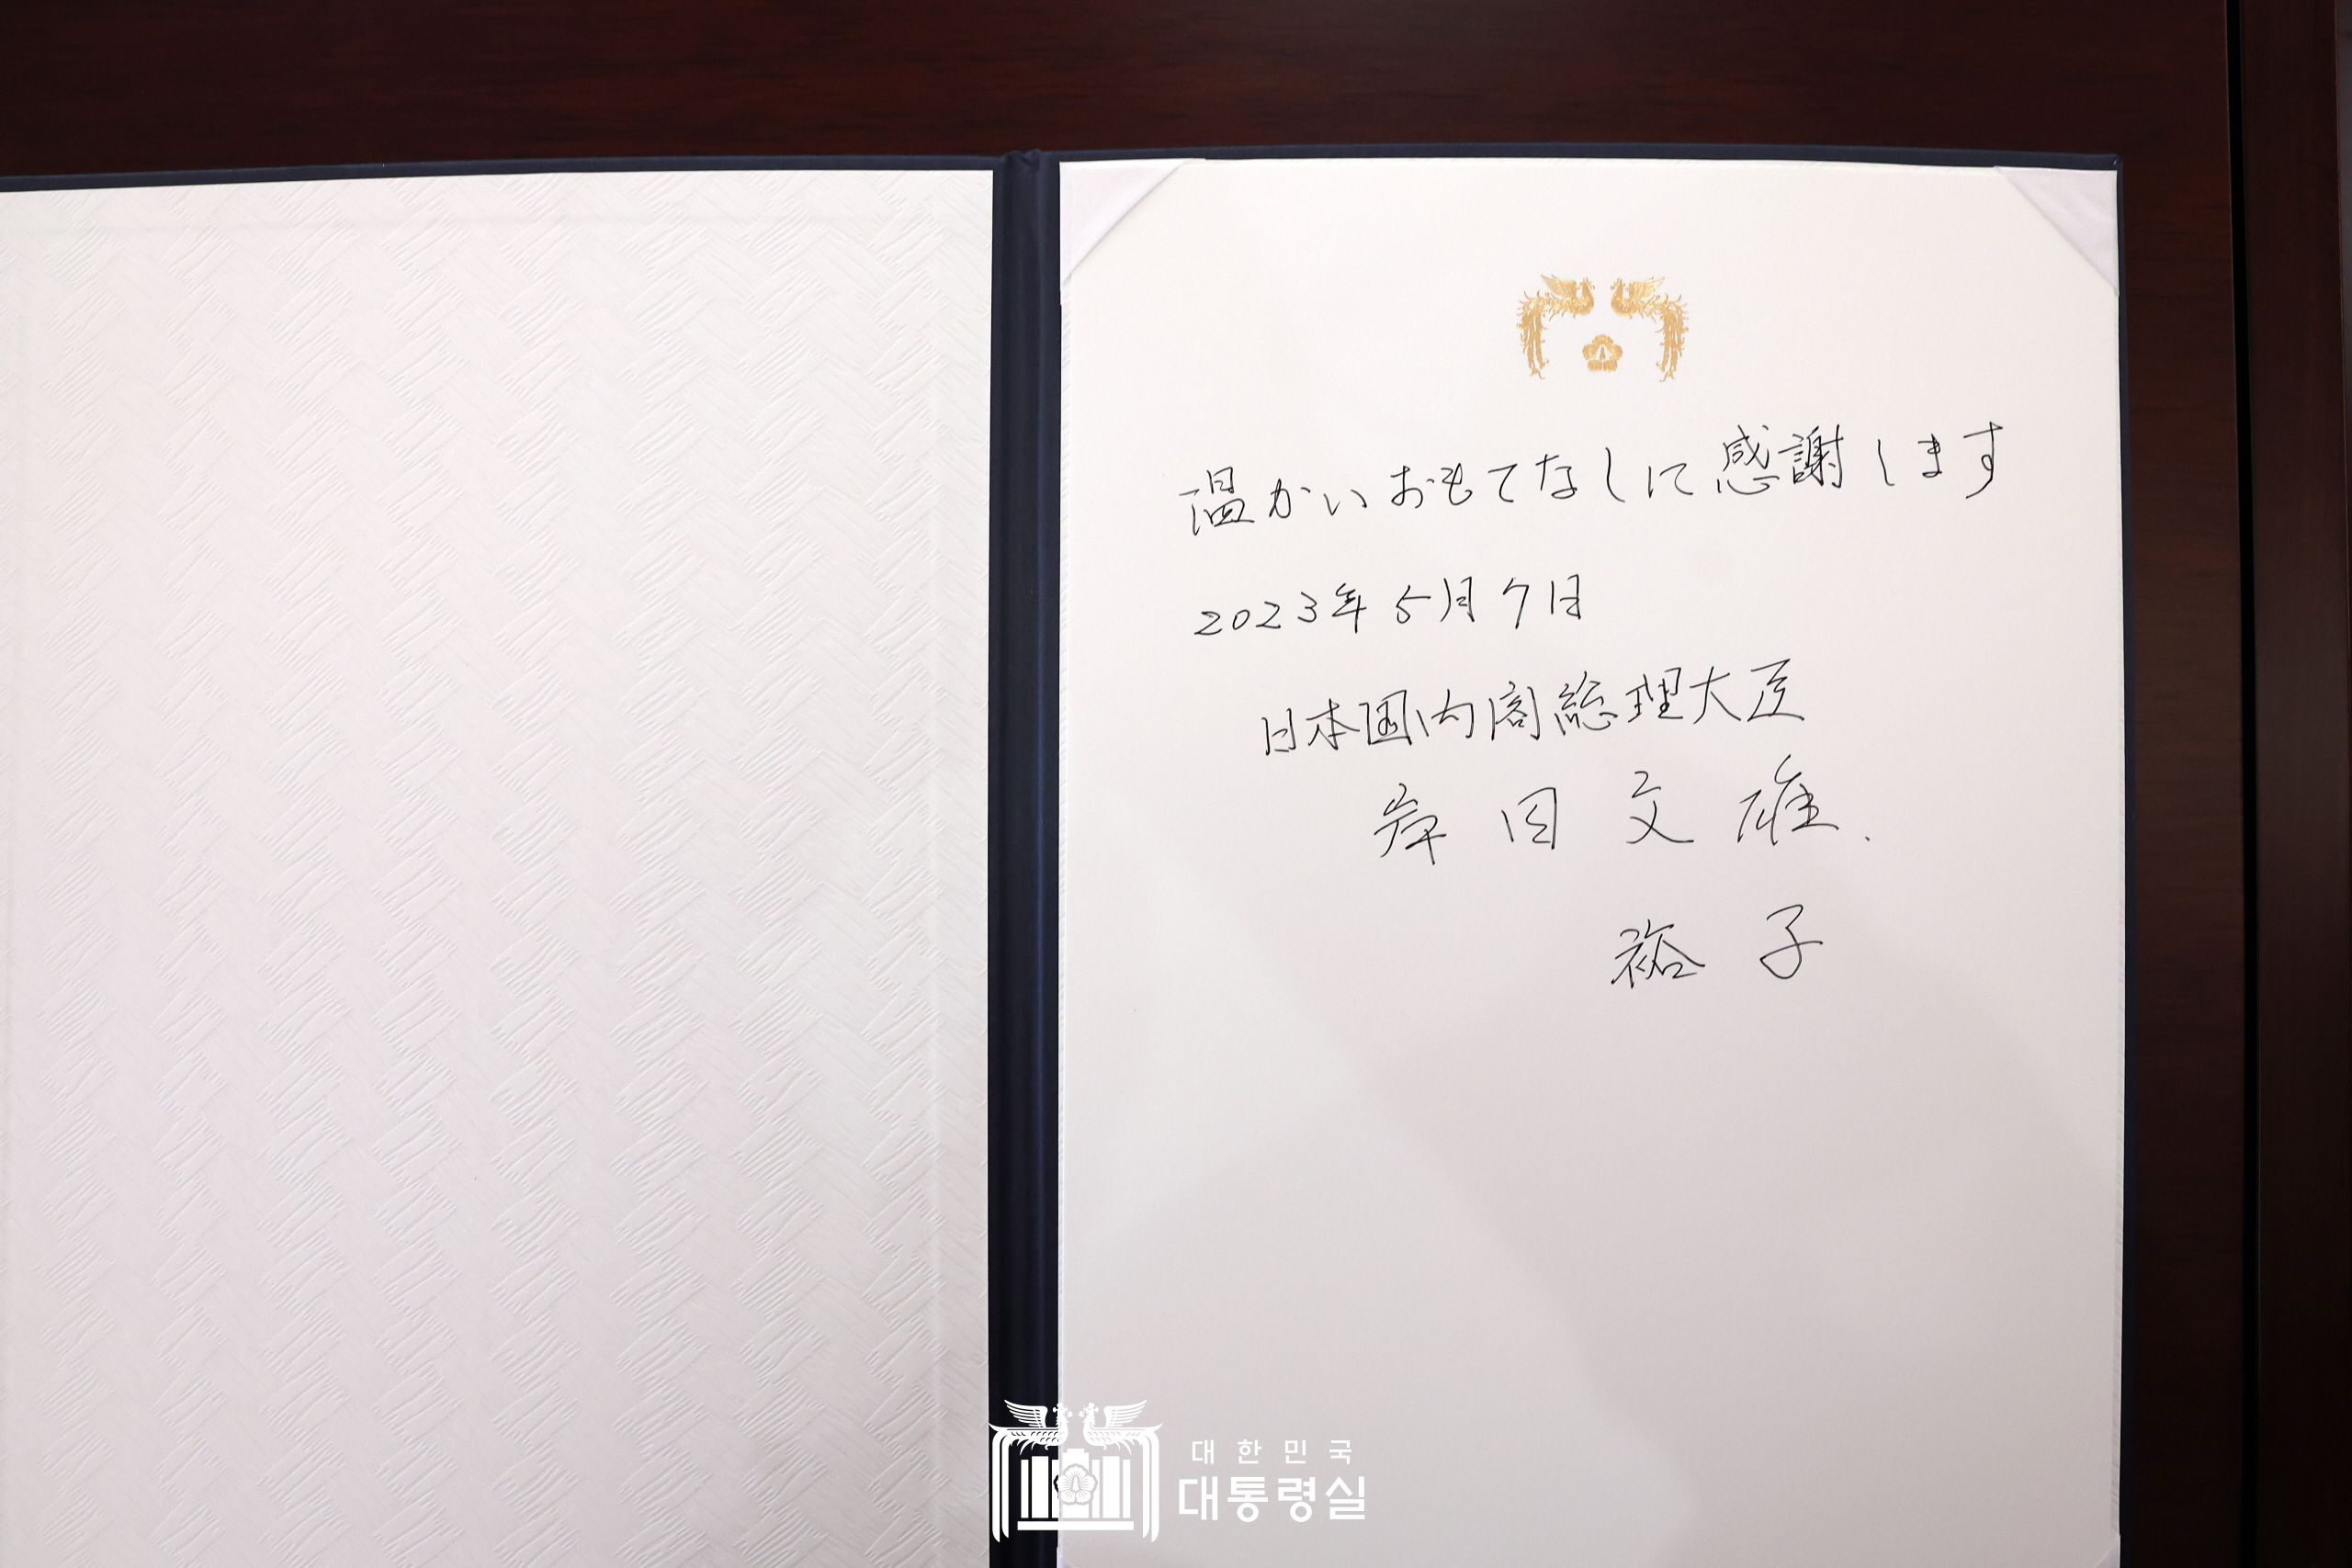 温かいおもてなしに感謝します
2023年5月7日
日本国内閣総理大臣
岸田文雄.
裕子
대한민국
대통령실